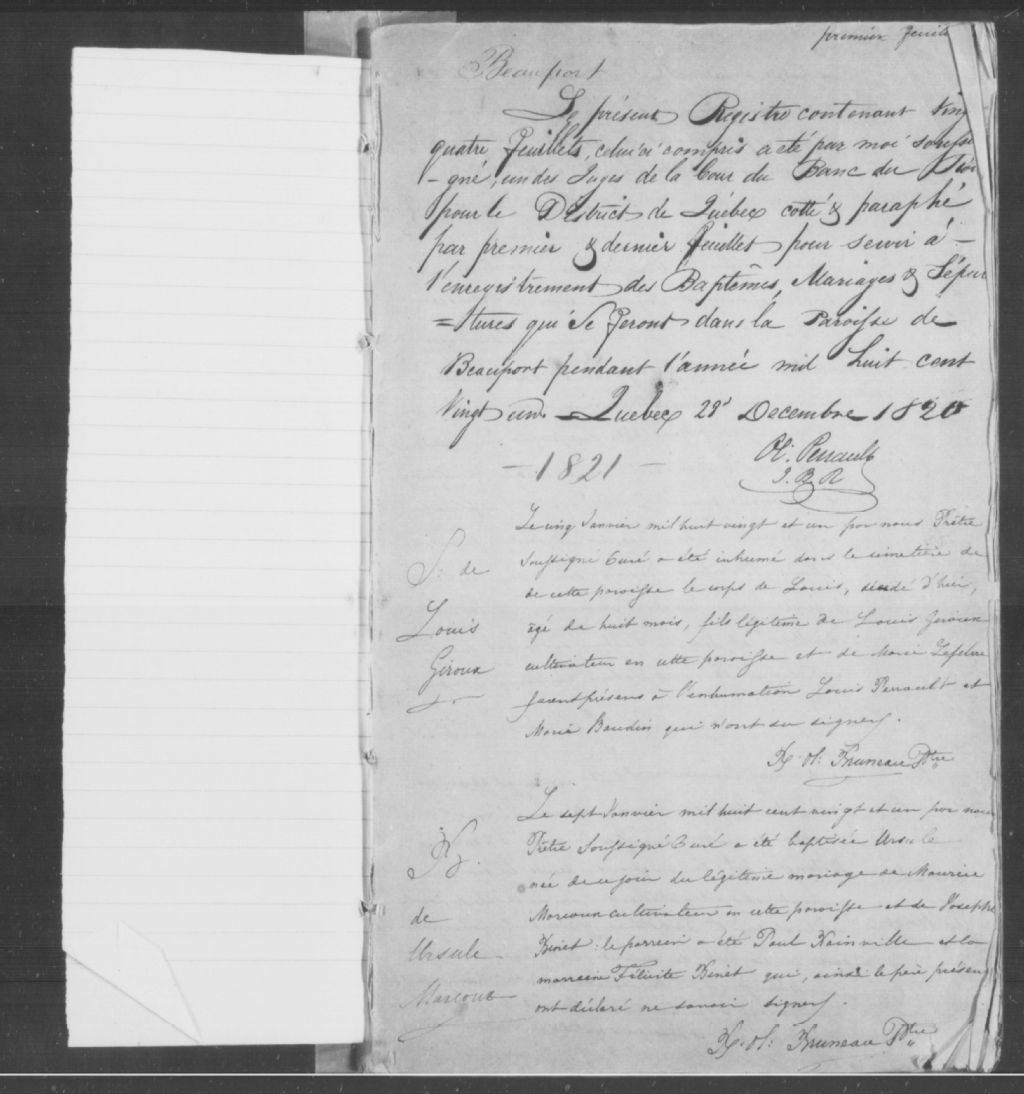 premier feuill
Beauport
Le présent Registre contenant Ving
quatre feuillets, celui ci compris a été par moi soussi
-gné, un des Juges de la Cour du Banc du Roi
pour le District de Québec cotté & paraphé
par premier & dernier feuillet pour servir à -
l'enregistrement des Baptêmes, Mariages & Sépul
=tures qui se feront dans la Paroisse de
Beauport pendant l'année mil huit cent
Vingt un - Quebec 29 Decembre 1820
Ol. Perrault
J. B. R
- 1821 -
Le cinq Janvier mil huit vingt et un par nous Prêtre
S. de
soussigné Curé a été inhumé dans le cimetière de
de cette paroisse le corps de Louis, décédé d'hier,
Louis
âgé de huit mois, fils légitime de Louis Giroux
Giroux
cultivateur en cette paroisse et de Marie Lefebvre
furent présens à l'inhumation Louis Perrault et
Marie Baudin qui n'ont su signer.
Ptre
Le sept Janvier mil huit cent vingt et un par nous
B.
Prêtre Soussigné Curé a été baptisée Ursule
née de ce jour du légitime mariage de Maurice
de
Marcoux cultivateur en cette paroisse et de Josephe
Ursule
Binet: le parrein a été Paul Rainville et la
Marcoux
marreine Félicité Binet qui, ainsi le père présent
ont déclaré ne savoir signer.
Ptre